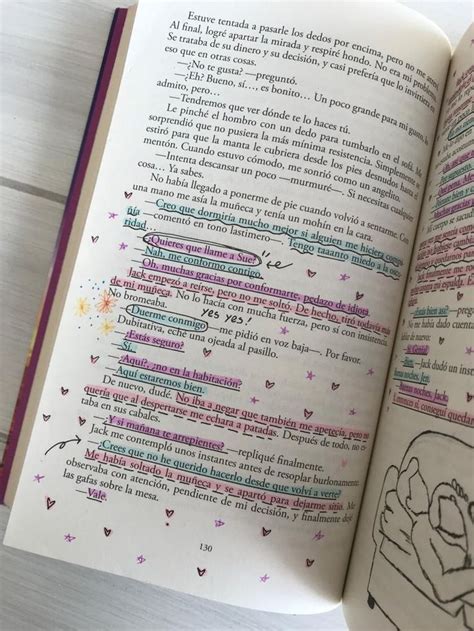 Estuve tentada a pasarle los dedos por encima, pero no me
Al final, logré apartar la mirada y respiré hondo. No era mi
Se trataba de su dinero y su decisión, y casi prefería que lo
eso que en otras cosas.
—¿No te gusta? —preguntó.
—¿Eh? Bueno, sí…, es bonito… Un poco grande para mi gusto,
admito, pero…
—Tendremos que ver dónde te lo haces tú.
Le pinché el hombro con un dedo para tumbarlo en el sofá. Me
sorprendió que no pusiera la más mínima resistencia. Simplemente
estiró para que la manta le cubriera desde los pies desnudos hasta
mentón. Cuando estuvo cómodo, me sonrió como un angelito.
—Intenta descansar un poco —murmuré—. Si necesitas cualquier
cosa… Ya sabes.
No había llegado a ponerme de pie cuando volvió a sentarme. Con
una mano me asía la muñeca y tenía un mohín en la cara.
—Creo que dormiría mucho mejor si alguien me hiciera compa-
ñía —comentó en tono lastimero—. Tengo taaanto miedo a la oscu-
ridad…
—¿Quieres que llame a Sue?
—Nah, me conformo contigo.
—Oh, muchas gracias por conformarte, pedazo de idiota.
Jack empezó a reírse, pero no me soltó. De hecho, tiró todavía más
de mi muñeca. No lo hacía con mucha fuerza, pero sí con insistencia.
No bromeaba.
YES YES!
—Duerme conmigo —me pidió en voz baja—. Por favor.
Dubitativa, eché una ojeada al pasillo.
—¿Estás seguro?
—Sí.
—¿Aquí?, ¿no en la habitación?
—Aquí estaremos bien.
De nuevo, dudé. No iba a negar que también me apetecía, pero no
quería que al despertarse me echara a patadas. Después de todo, no es-
taba en sus cabales.
—¿Y si mañana te arrepientes? —repliqué finalmente.
Jack me contempló unos instantes antes de resoplar burlonamente.
—¿Crees que no he querido hacerlo desde que volví a verte?
Me había soltado la muñeca y se apartó para dejarme sitio. Me
observaba con atención, pendiente de mi decisión, y finalmente dejé
las gafas sobre la mesa.
—Vale.
130